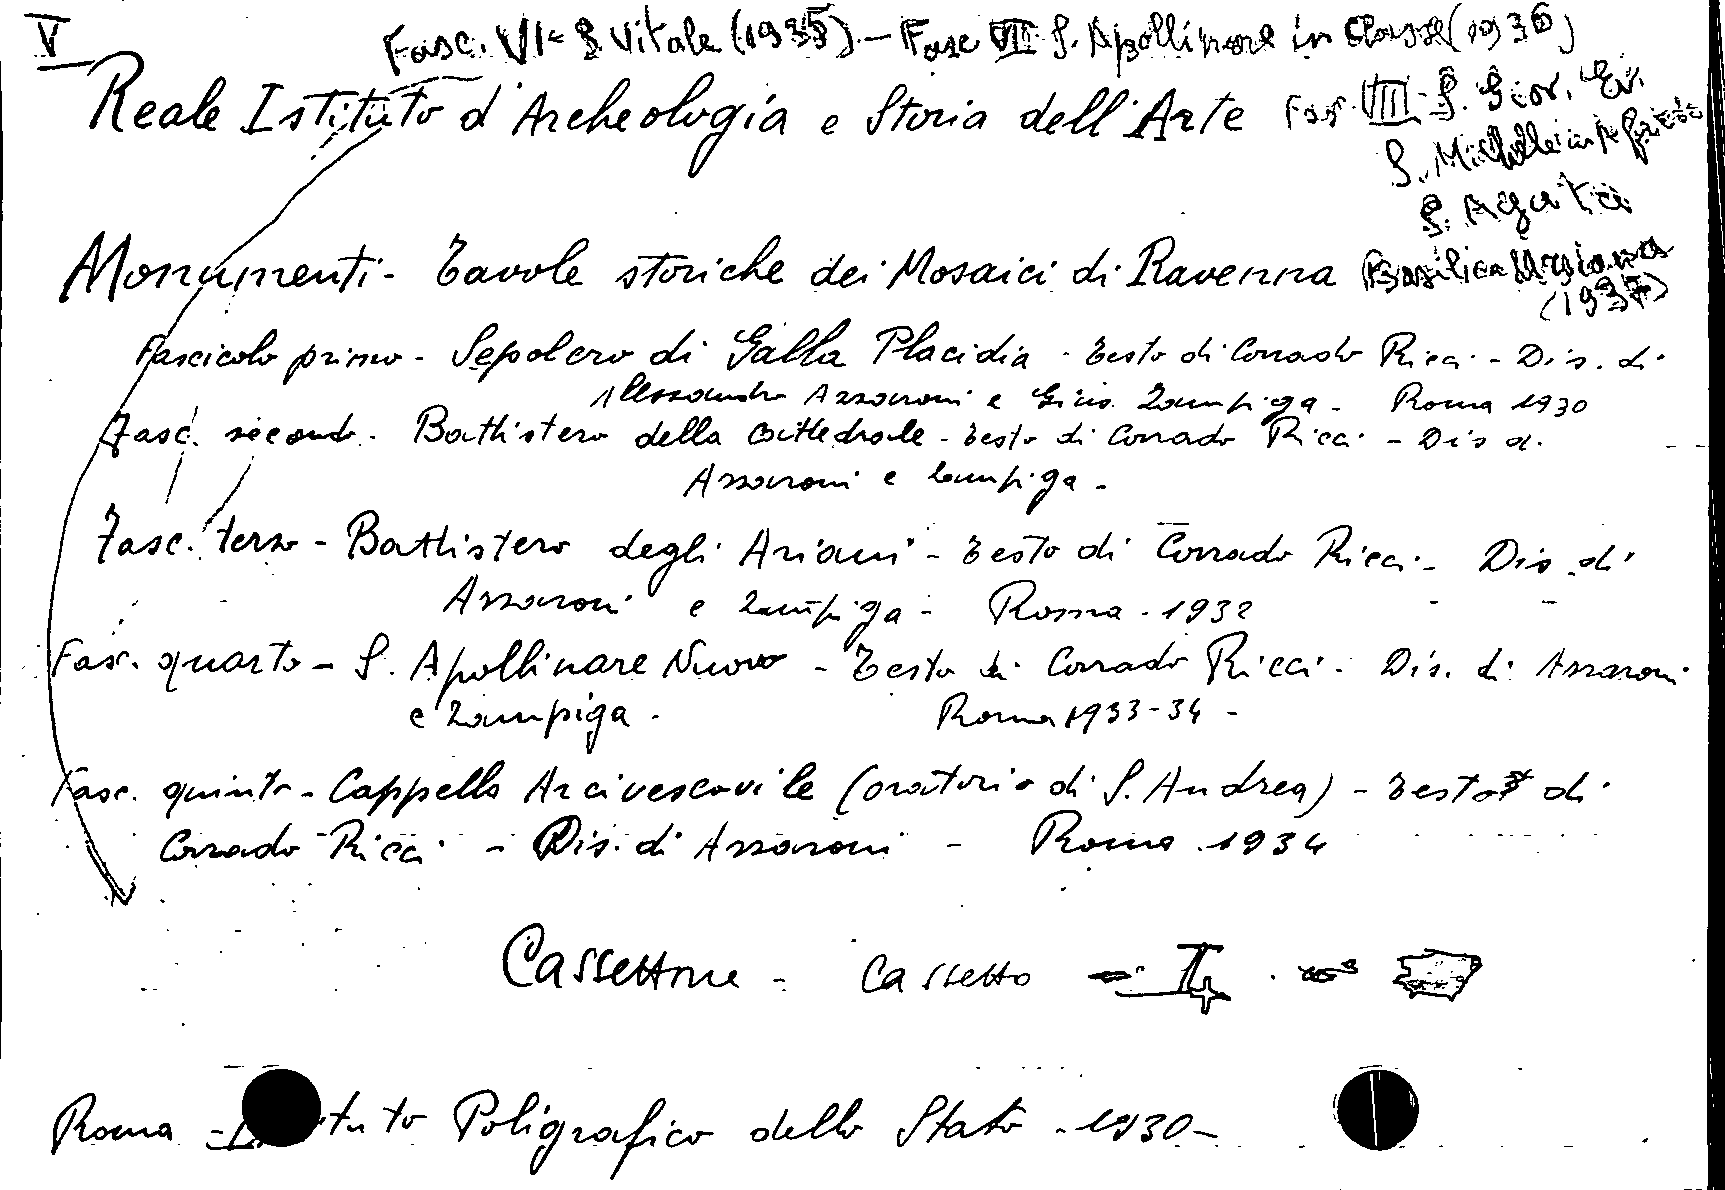 V
Fasc. VI- S Vitale (1935) - Fasc VII S. Apollinare in Classe (1936)
Reale Istituto d'Archeologia e Storia dell'Arte
Fas. VIII - S. Giov. Ev.
S. Michele in Africisco
S. Agata
Basilica Ursiana
(1937)
Monumenti - Tavole storiche dei Mosaici di Ravenna
Fascicolo primo - Sepolcro di Galla Placidia - Testo di Corrado Ricci - Dis. di
Alessandro Azzaroni e Gius. Zampiga - Roma 1930
Fasc. secondo - Battistero della Cattedrale - Testo di Corrado Ricci - Dis di
Azzaroni e Zampiga -
Fasc. terzo - Battistero degli Ariani - Testo di Corrado Ricci - Dis. di
Azzaroni e Zampiga - Roma - 1932
Fasc. quarto - S. Apollinare Nuovo - Testo di Corrado Ricci - Dis. di Azzaroni
e Zampiga - Roma 1933-34 -
Fasc. quinto - Cappella Arcivescovile (oratorio di S. Andrea) - Testo di
Corrado Ricci - Dis. di Azzaroni - Roma 1934
Cassettone - Cassetto
Roma - tuto Poligrafico dello Stato - 1930 -